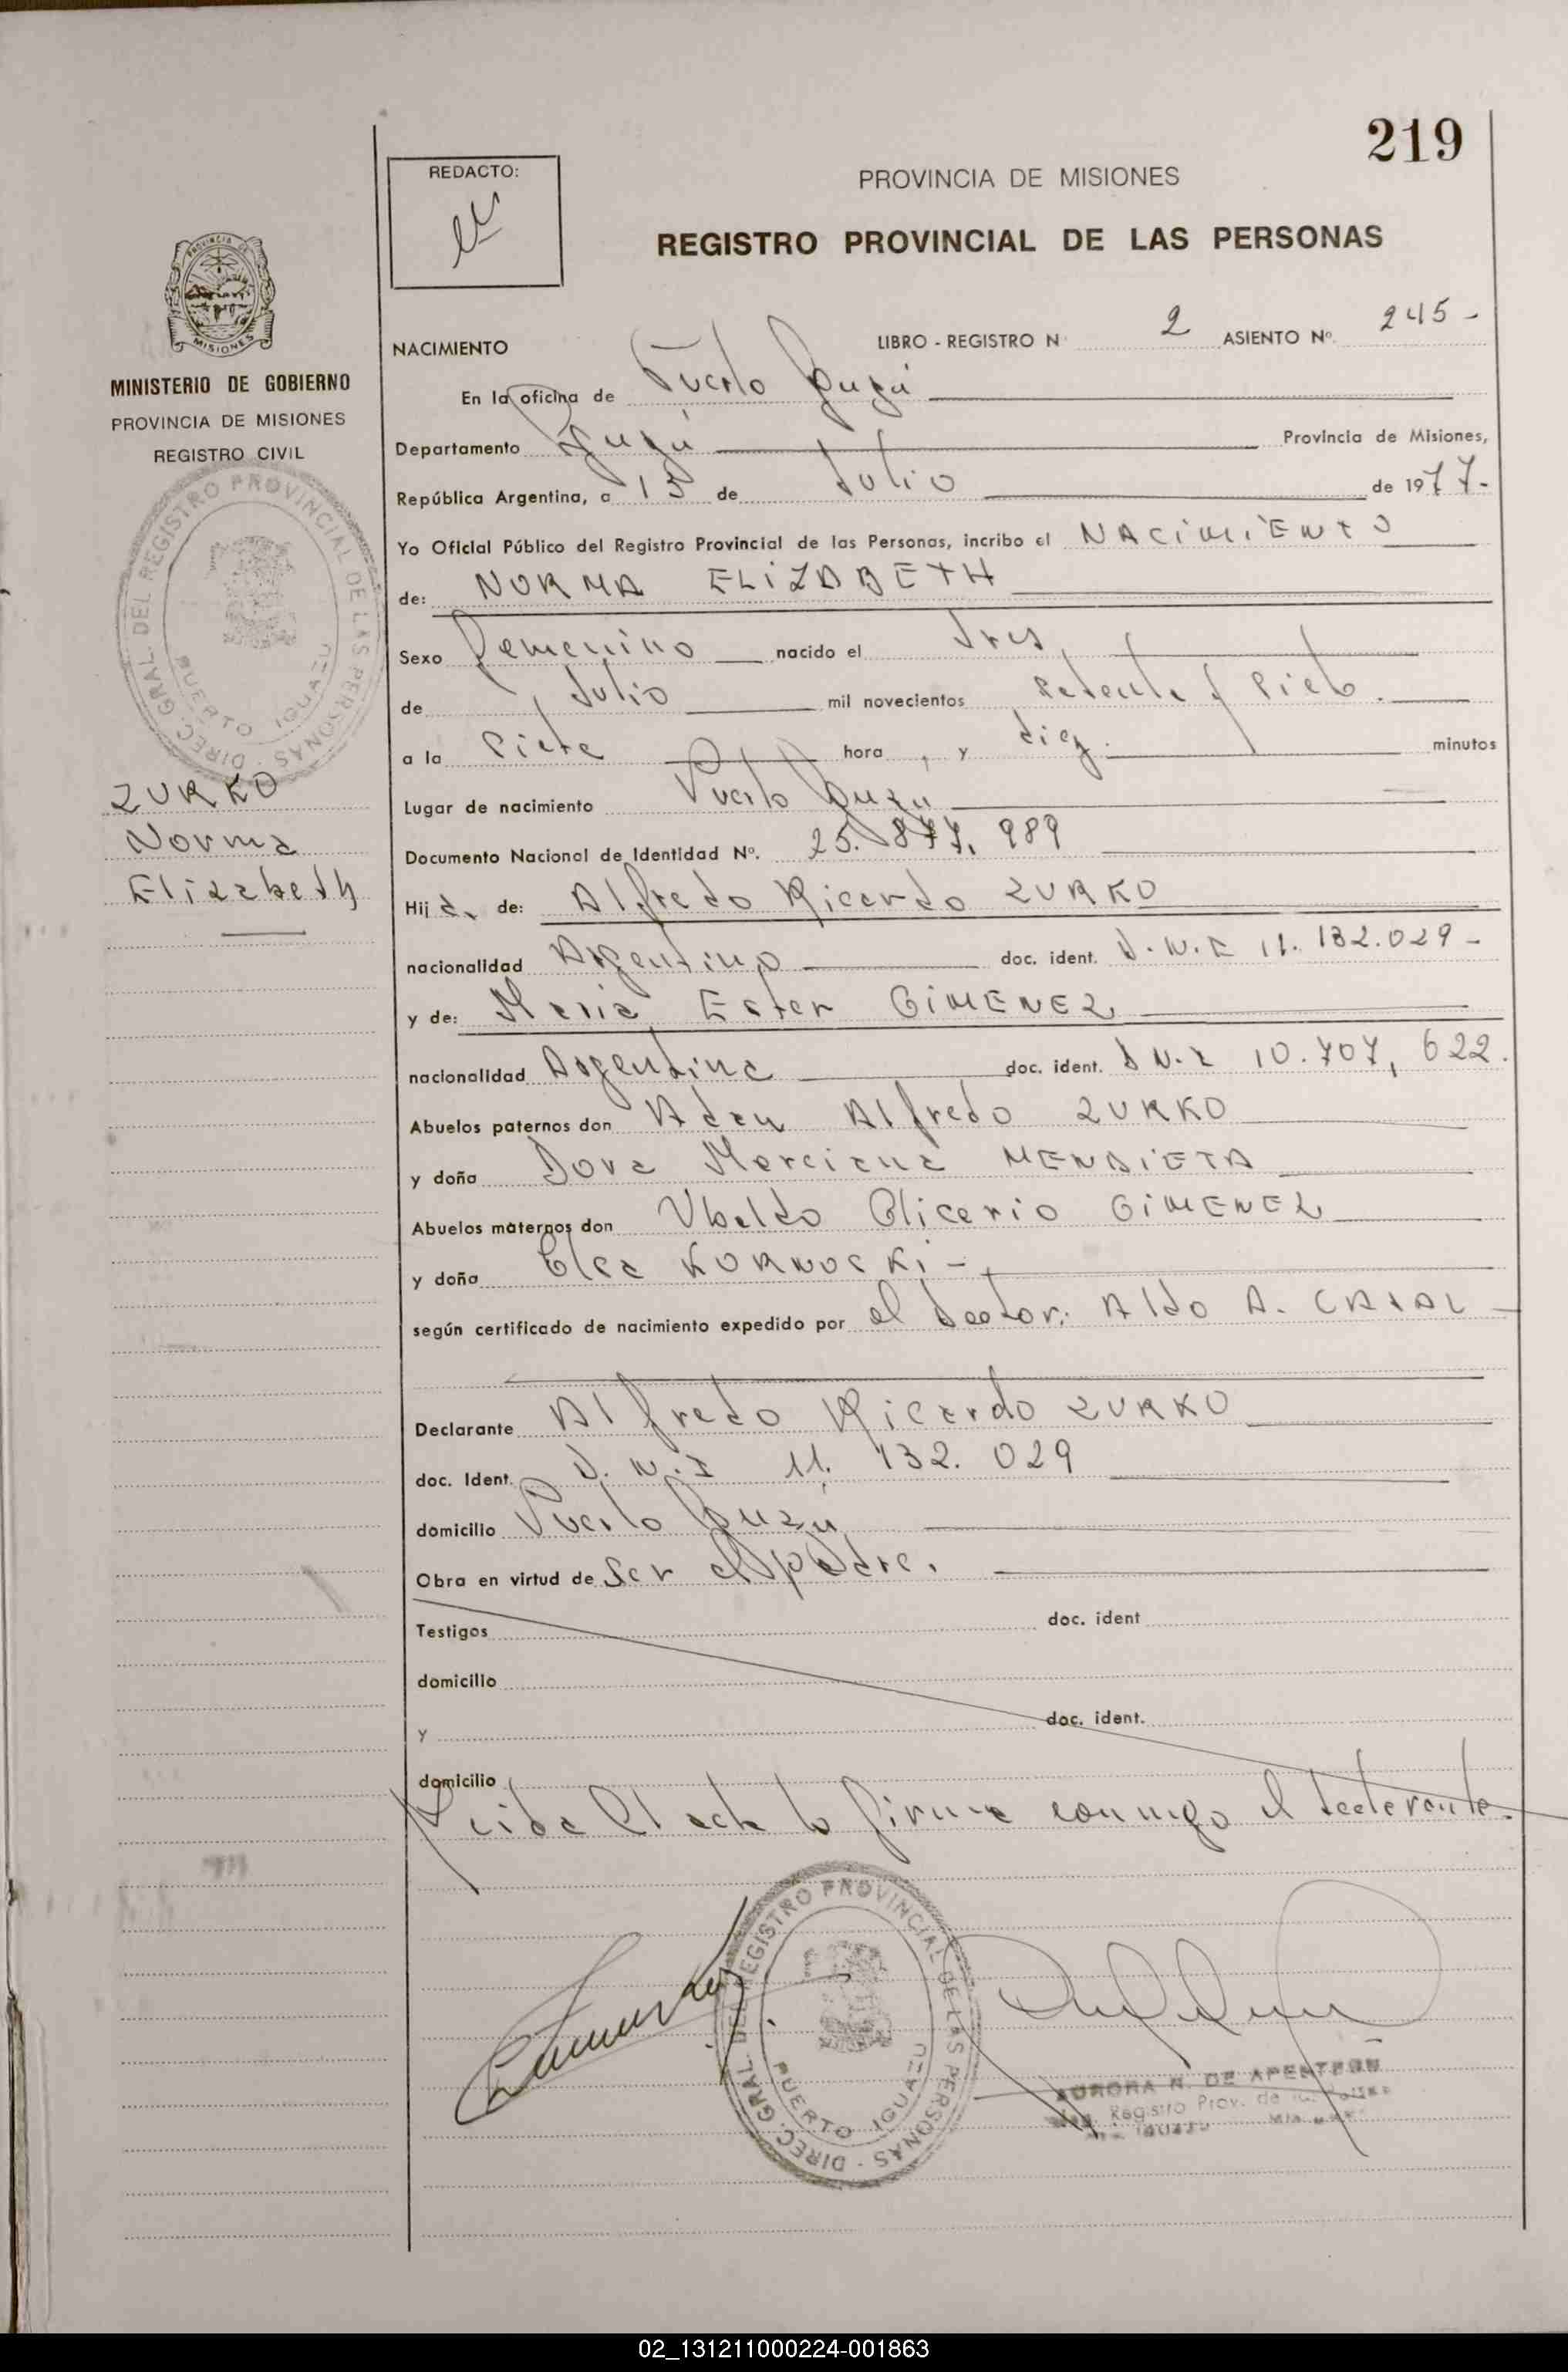 219
REDACTO:
PROVINCIA DE MISIONES
REGISTRO PROVINCIAL DE LAS PERSONAS
PROVINCIA DE
MISIONES
MINISTERIO DE GOBIERNO
PROVINCIA DE MISIONES
REGISTRO CIVIL
DIREC. GRAL. DEL REGISTRO PROVINCIAL DE LAS PERSONAS
PUERTO IGUAZU
ZURKO
Norma
Elizabeth
NACIMIENTO LIBRO - REGISTRO N 2 ASIENTO Nº 245 -
En la oficina de Puerto Iguazú
Departamento Iguazú Provincia de Misiones,
República Argentina, a 13 de Julio de 1977.-
Yo Oficial Público del Registro Provincial de las Personas, incribo el NACIMIENTO
de: NORMA ELIZABETH
Sexo femenino nacido el tres
de Julio mil novecientos setenta y siete.
a la siete hora, y diez. minutos
Lugar de nacimiento Puerto Iguazú
Documento Nacional de Identidad Nº. 25.877.989
Hija de: Alfredo Ricardo ZURKO
nacionalidad Argentino doc. ident. D.N.I 11.132.029 -
y de: Maria Ester GIMENEZ
nacionalidad Argentina doc. ident. D N.I 10.707,622.
Abuelos paternos don Adan Alfredo ZURKO
y doña Dora Marciana MENDIETA
Abuelos maternos don Ubaldo Glicerio GIMENEZ
y doña Elsa KORNOSKI -
según certificado de nacimiento expedido por el Doctor: Aldo A. CASAL
Declarante Alfredo Ricardo ZURKO
doc. Ident. D.N.I 11.132.029
domicilio Puerto Iguazú
Obra en virtud de ser el padre.
Testigos doc. ident
domicilio
y doc. ident.
domicilio
Leida el acta la firma conmigo el declarante.
DIREC. GRAL. DEL REGISTRO PROVINCIAL DE LAS PERSONAS
PUERTO IGUAZU
AURORA N. DE
Registro Prov. de
02_131211000224-001863